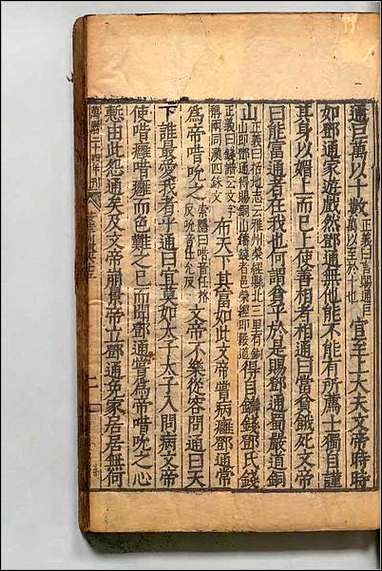 通巨萬以十數正義曰言賜通巨萬以至於十也官至上大夫文帝時時
如鄧通家遊戲然鄧通無他能不能有所薦士獨自謹
其身以媚上而已上使善相者相通曰當貧餓死文帝
曰能富通者在我也何謂貧乎於是賜鄧通蜀嚴道銅
山正義曰括地志云雅州榮經縣北三里有銅山即鄧通得賜銅山鑄錢者案榮經即嚴道得自鑄錢鄧氏錢
正義曰錢譜云文字稱兩同漢四銖文布天下其富如此文帝嘗病癰鄧通常
爲帝唶吮之索隱曰唶音任格反吮仕兗反文帝不樂從容問通曰天
下誰最愛我者乎通曰宜莫如太子太子入問病文帝
使唶癰唶癰而色難之已而聞鄧通嘗爲帝唶吮之心
慙由此怨通矣及文帝崩景帝立鄧通免家居居無何